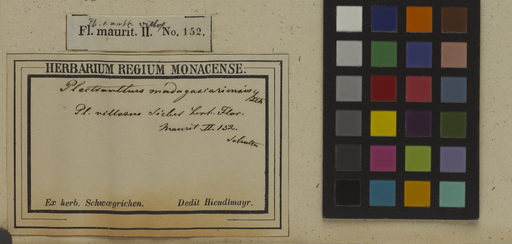 Pl. matt. villos
Fl. maurit. II. No. 152.
HERBARIUM REGIUM MONACENSE.
Plectranthus madagascariensis Bth
Pl. villosus Sieber herb. Flor.
Maurit II. 152.
Schultes
Ex herb. Schwægrichen. Dedit Hiendlmayr.